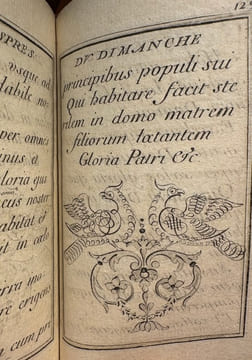 SPRES
usque ad
dabile no:
per omnes
loria ejus
noster
abitat et
it in cœlo
re erigens
cum prin
DV DIMANCHE
principibus populi sui
Qui habitare facit ste
rilem in domo matrem
filiorum lætantem
Gloria Patri &c